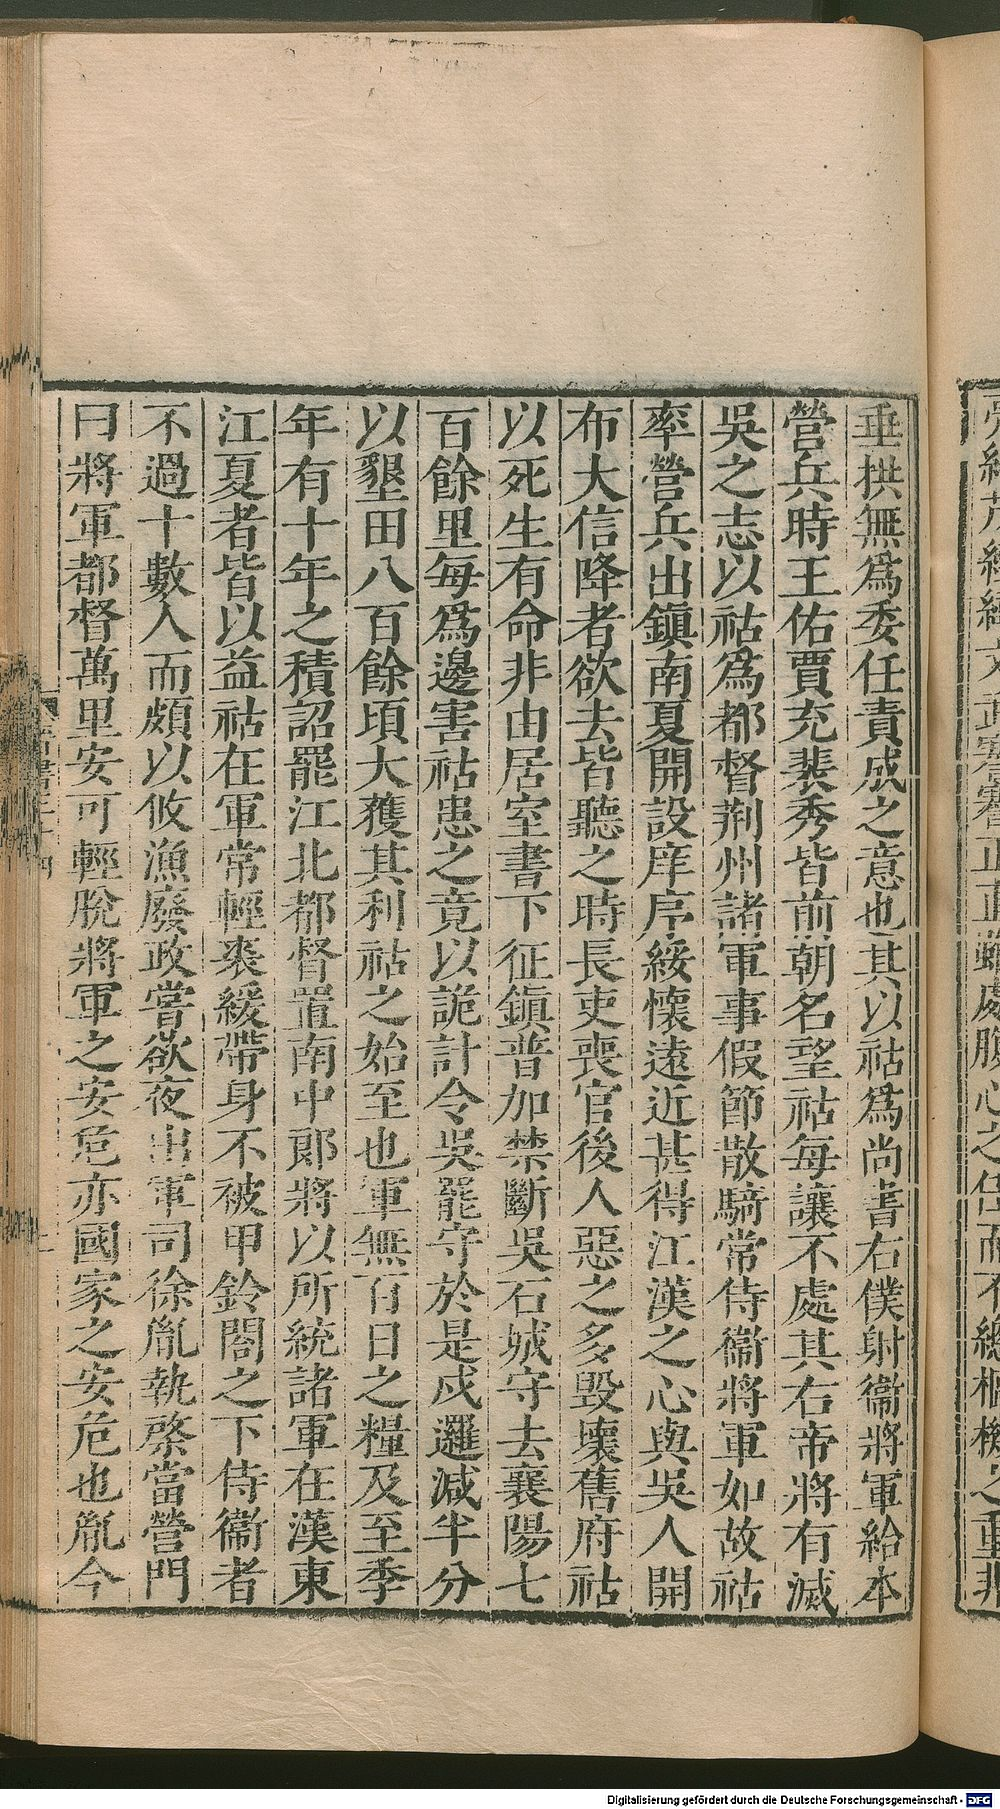 垂拱無爲委任責成之意也其以祜爲尚書右僕射衞將軍給本
營兵時王佑賈充裴秀皆前朝名望祜每讓不處其右帝將有滅
吳之志以祜爲都督荆州諸軍事假節散騎常侍衞將軍如故祜
率營兵出鎭南夏開設庠序綏懷遠近甚得江漢之心與吳人開
布大信降者欲去皆聽之時長吏喪官後人惡之多毀壞舊府祜
以死生有命非由居室書下征鎭普加禁斷吳石城守去襄陽七
百餘里每爲邊害祜患之竟以詭計令吳罷守於是戍邏減半分
以墾田八百餘頃大獲其利祜之始至也軍無百日之糧及至季
年有十年之積詔罷江北都督置南中郎將以所統諸軍在漢東
江夏者皆以益祜在軍常輕裘緩帶身不被甲鈴閤之下侍衞者
不過十數人而頗以攸漁廢政嘗欲夜出軍司徐胤執棨當營門
曰將軍都督萬里安可輕脫將軍之安危亦國家之安危也胤今
Digitalisierung gefördert durch die Deutsche Forschungsgemeinschaft - DFG